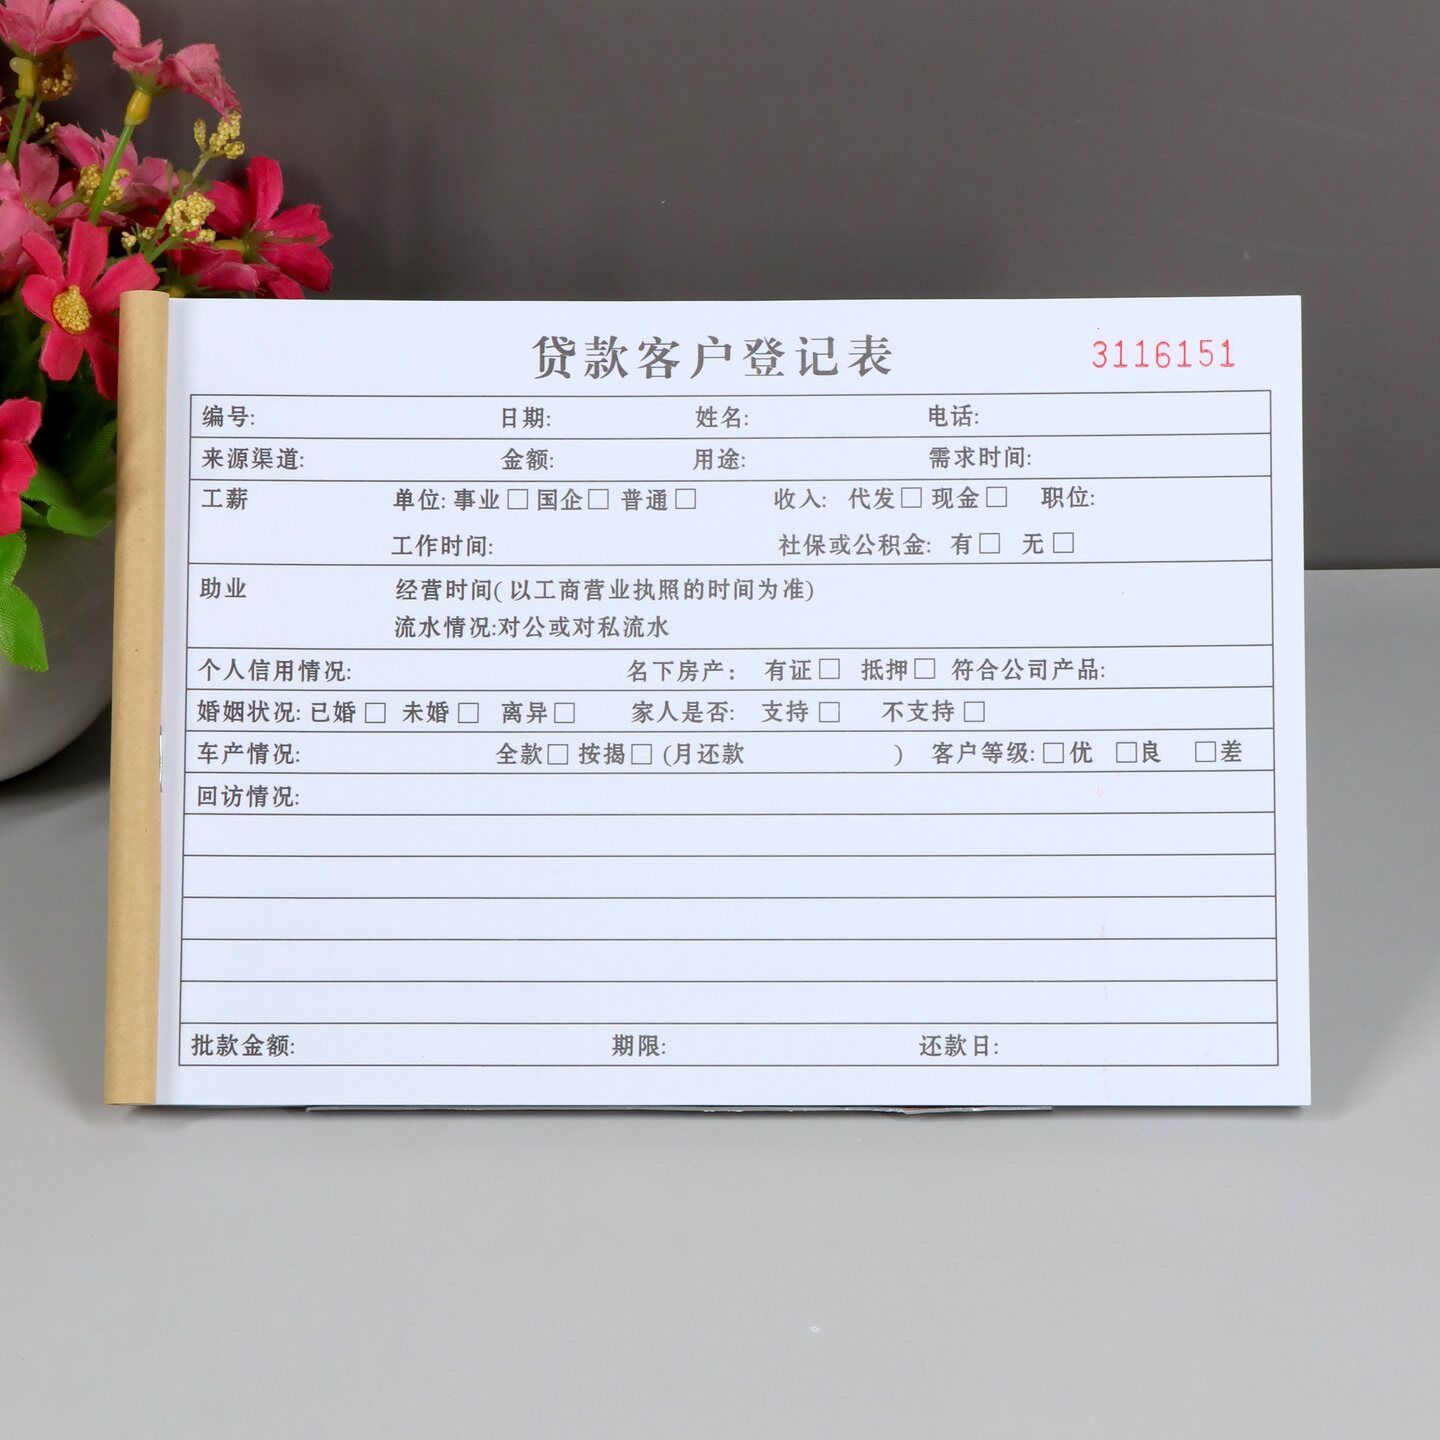 贷款客户登记表 3116151
编号: 日期: 姓名: 电话:
来源渠道: 金额: 用途: 需求时间:
工薪 单位: 事业□ 国企□ 普通□ 收入: 代发□ 现金□ 职位:
工作时间: 社保或公积金: 有□ 无□
助业 经营时间( 以工商营业执照的时间为准)
流水情况:对公或对私流水
个人信用情况: 名下房产: 有证□ 抵押□ 符合公司产品:
婚姻状况: 已婚□ 未婚□ 离异□ 家人是否: 支持□ 不支持□
车产情况: 全款□ 按揭□ (月还款 ) 客户等级: □优 □良 □差
回访情况:
批款金额: 期限: 还款日: